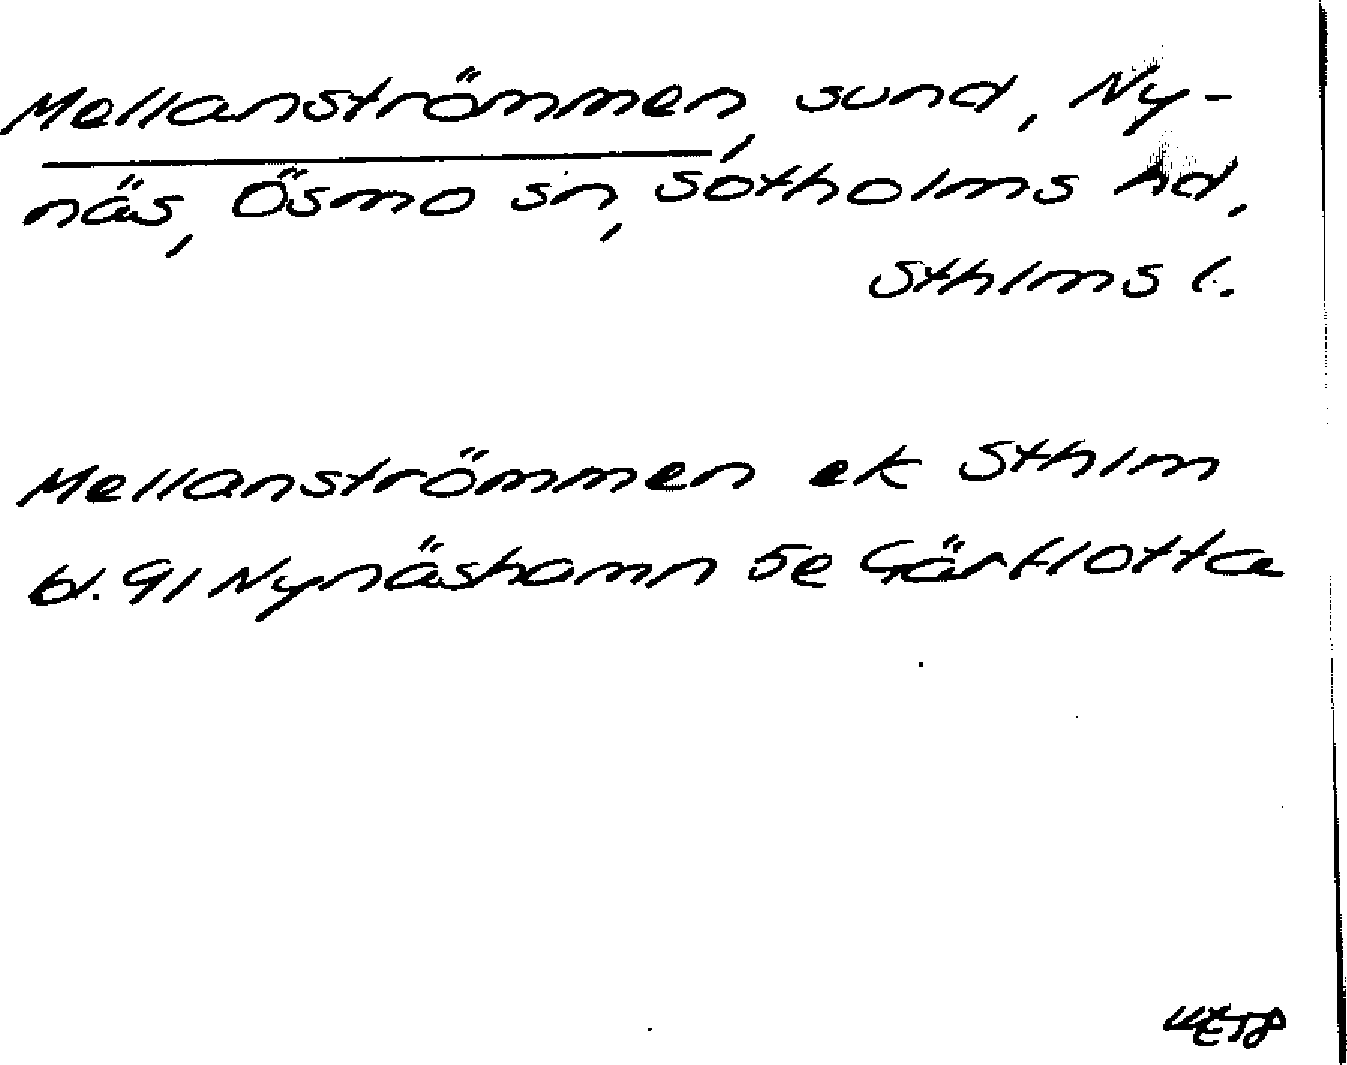 Mellanströmmen, sund, Ny-
näs, Ösmo sn, Sotholms hd,
Sthlms l.
Mellanströmmen ek Sthlm
bl. 91 Nynäshamn 5e Gärflotta